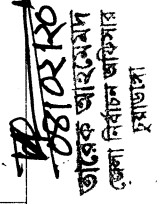 ০৪।০২।২০
তারেক আহমেমদ
জেলা নির্বাচন অফিসার
চুয়াডাঙ্গা